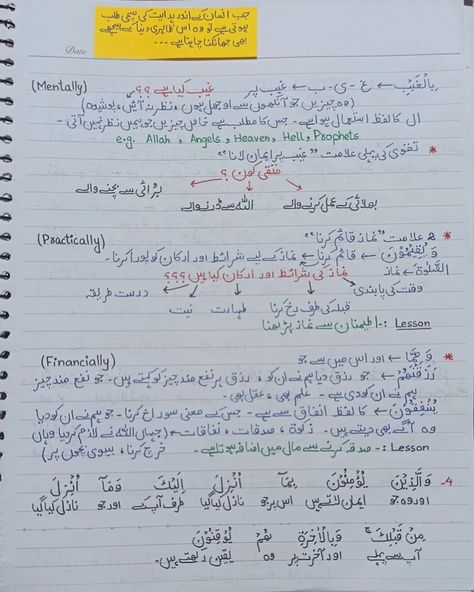 جب انسان کے اندر ہدایت کی سچی طلب
ہوتی ہے تو وہ اس ظاہری دنیا کے پیچھے
بھی جھانکنا چاہتا ہے ---
Date
(Mentally) بِالْغَيْبِ ← غ - ی - ب ← غیب پر غیب کیا ہے ؟؟
(وہ چیزیں جو آنکھوں سے اوجھل ہوں، نظر نہ آئیں، پوشیدہ)
ال کا لفظ استعمال ہوا ہے - جس کا مطلب ہے خاص چیزیں جو ہمیں نظر نہیں آتی -
e.g. Allah, Angels, Heaven, Hell, Prophets
* تقویٰ کی پہلی علامت "غیب پر ایمان لانا"
متقی کون ؟
بھلائی کے عمل کرنے والے اللہ سے ڈرنے والے برائی سے بچنے والے
* 2 علامت "نماز قائم کرنا"
(Practically) وَيُقِيمُونَ ← قائم کرنا ← نماز کے لیے شرائط اور ارکان کو پورا کرنا -
الصَّلٰوةَ ← نماز نماز کی شرائط اور ارکان کیا ہیں ؟؟؟
وقت کی پابندی قبلہ کی طرف رخ کرنا طہارت نیت درست طریقہ
Lesson :- اطمینان سے نماز پڑھنا
* (Financially) وَمِمَّا ← اور اس میں سے جو
رَزَقْنٰهُمْ ← جو رزق دیا ہم نے ان کو، رزق ہر نفع مند چیز کو کہتے ہیں - جو نفع مند چیز
ہم نے ان کو دی ہے - علم بھی، عقل بھی -
يُنْفِقُونَ ← کا لفظ انفاق سے ہے - جس کے معنی سوراخ کرنا - جو ہم نے ان کو دیا
وہ آگے بھی دیتے ہیں - زکوٰۃ، صدقات، نفاقات ← (جہاں اللہ نے لازم کر دیا وہاں
خرچ کرنا، بیوی بچوں پر)
Lesson :- صدقہ کرنے سے مال میں اضافہ ہوتا ہے -
4- وَالَّذِيْنَ يُؤْمِنُوْنَ بِمَآ اُنْزِلَ اِلَيْكَ وَمَآ اُنْزِلَ
اور وہ جو ایمان لاتے ہیں اس پر جو نازل کیا گیا طرف آپ کے اور جو نازل کیا گیا
مِنْ قَبْلِكَ ۚ وَبِالْاٰخِرَةِ هُمْ يُوْقِنُوْنَ
آپ سے پہلے اور آخرت پر وہ یقین رکھتے ہیں -